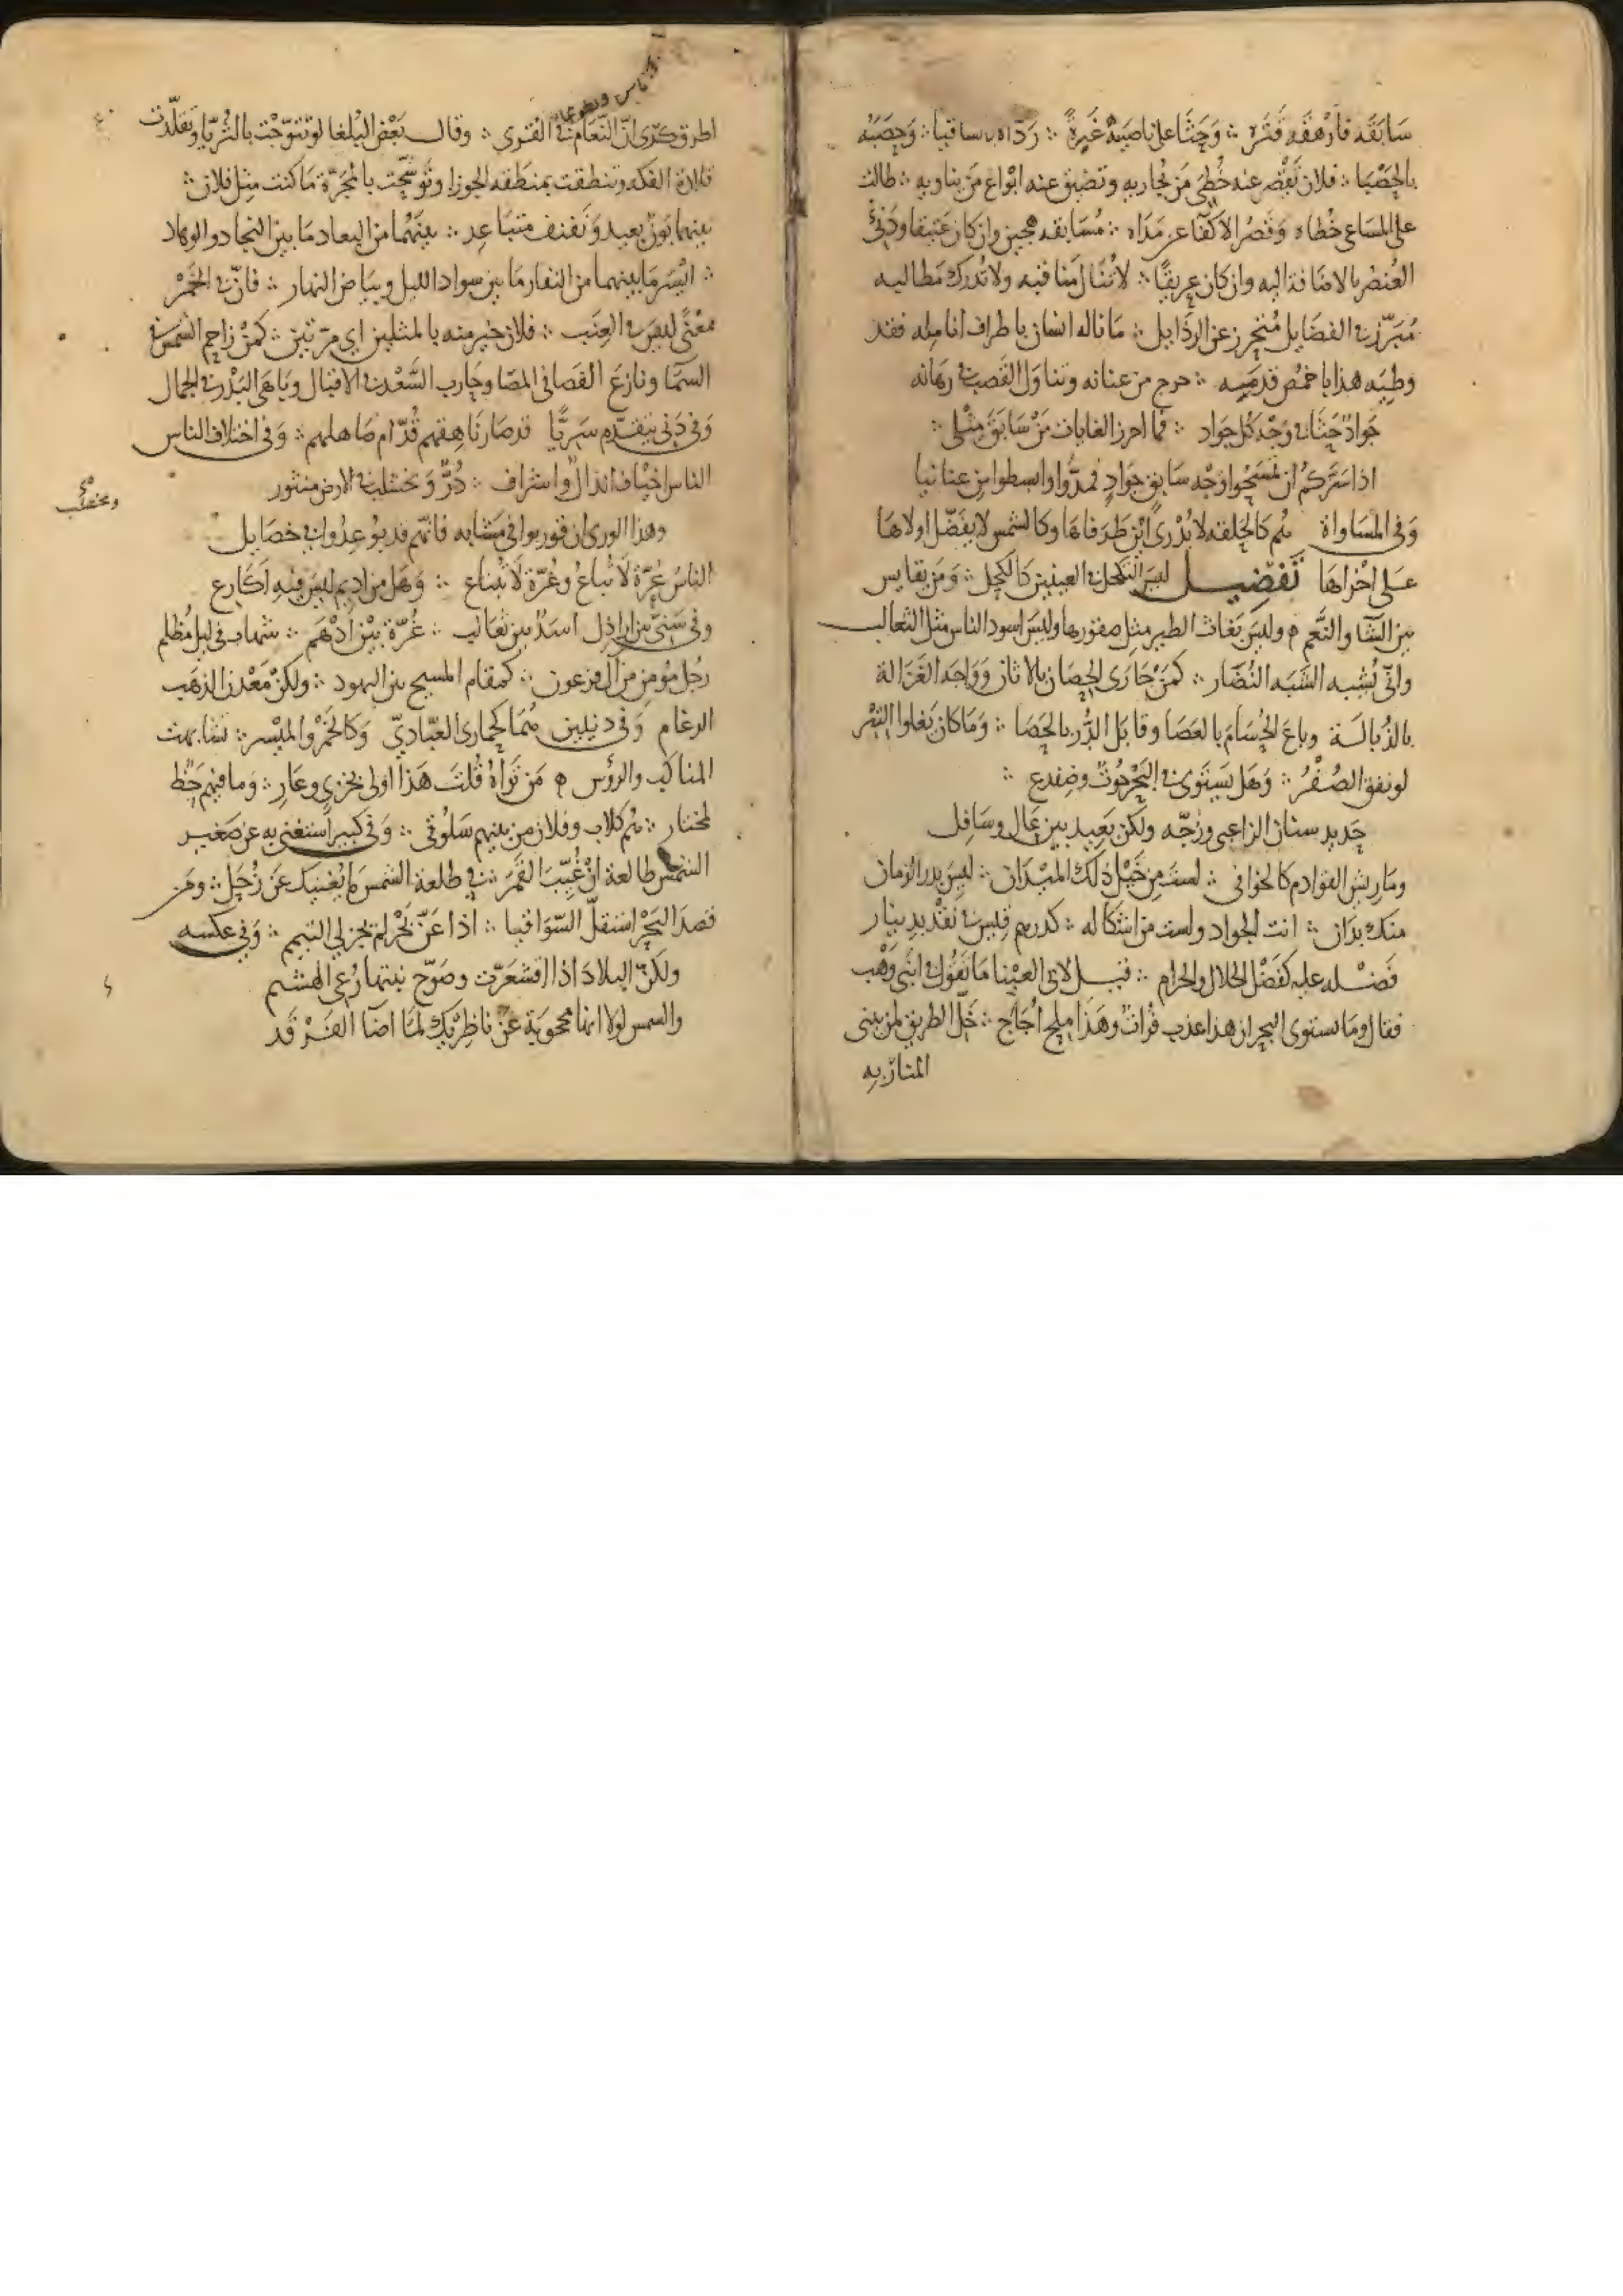 سَابَقَه فأرهقَه قَتَره ∴ وَحَثَا على ناصيته غَبرةً ∴ رَدّاه ساقيا ∴ وحصَبَه
بالحَصْبَا ∴ فلان تقصُر عنه خُطى مَن يُجاريه وتضيق عنه ابْوَاع مَن يناويه ∴ طالت
على المسَاعى خُطاه وَقَصُر الاكفَا عن مَدَاه ∴ مُسَابقه هجين وان كان عَتيقا ودَنىُّ
العُنصر بالاضافة اليه وان كان عريقًا ∴ لا تُنَال مَناقبه ولا تُدرَك مَطالبه
مُبَرّز في الفضَايل مُنحجز عن الرذَايل ∴ مَا ناله انسَان باطراف انامله فقد
وطِيَه هذا باخمَص قدمَيه ∴ خرج من عنانه وتناوَل القصَب في رهَانه
جَوادٌ حَثَا في وَجْه كُل جَواد ∴ فما احرز الغايات مَنْ سَابَق مِثْلى ∴
اذا سَرّكم ان تمسَحُوا وَجْه سَابق جَوادٍ فمدُّوا وابسطوا من عنانيا
وَفى المسَاواة هُم كَالحَلقه لا يُدْرى اين طَرَفاهَا وكالشمس لا يفَضّل اولاهَا
عَلى اخْراهَا تَفضيل ليسَ التكحل في العينين كَالكحل ∴ وَمَن يقايس
بين الشَّا والنَّعَم ه وليسَ بَغاث الطير مثل صقورها وليسَ اسود الناس مثل الثعالب
وانّى يُشبه الشَّبَه النُّضَار ∴ كمَنْ جَارَى الحِصَان بالاتان وَوَاجَه الغَزالة
بالذُبالَة وباعَ الحُسَامَ بالعَصَا وقابَل الدُّر بالحصَا ∴ وَمَا كان يَغلوا التبْر
لو نفق الصُفْرُ ∴ وَهَل يَستَوى في البَحْر حُوتٌ وضِفدع ∴
حَديد سنان الزاعبى وزُجّه ولكن بَعيد بين عَال وسَافِل
ومَا ريش القوادم كالخوافى ∴ لستَ مِن خَيْل ذلك الميْدَان ∴ ليسَ بدر الزمان
منك بدَان ∴ انت الجواد ولست من اشكاله ∴ كدرهم قيس في نقْد دينار
فَضْله عليه كفَضْل الحلال والحرام ∴ قيل لابى العيْنا مَا تقُول في ابنَى وَهْب
فقال وما يستوى البحران هذا عذب فرات وهَذَا ملح اُجَاج ∴ خَلّ الطريق لمن يبنى
المنار به
اطرق كَرى انّ النّعَام في القُرى ∴ وقال بَعْض البُلغا لو تتوّجْت بالثُريّا وتقلّدت
قلادة الفكه وتنطقت بمنطقه الجوزا وتوشّحت بالمجَرّة مَا كنت مثِل فلان ∴
بينهما بَوْن بعيد وَنفنف متبَاعِد ∴ بينَهُما من البعاد مَا بين النجاد والوهاد
∴ ايْسَر مَا بينهما من النفار مَا بين سواد الليل وبيَاض النهار ∴ فانّ في الخَمْر
معْنًى ليسَ في العِنَب ∴ فلان خير منه بالمثلين اى مرّتين ∴ كمَنْ زاحم الشمسَ في
السمَّا ونازعَ القضَا في المضَا وحَارب السَّعْد في الاقبَال وبَاهَى البَدْر في الجمال
وَفى دَنى يتقدّم سَريًّا قد صَار نَاهِقهم قُدّام صَاهلهم ∴ وَفى اختلاف الناس
الناس اخيَاف انذالٌ واشراف ∴ دُرٌّ وَمخشلب في الارض منثور
وهذا الورى ان قوربوا فى مَشَابه فانّهم قد بُوعِدُوا في خصَايل
الناسُ عُرّة لا تُباعُ وغُرّة لَا تُبتاع ∴ وَهَل من اديم ليسَ فيه اكَارع
وفى سَنىّ بين اراذِل اسَدٌ بين ثعَالب ∴ غُرّة بيْن اَدْهَم ∴ شهاب فى ليل مُظلم
رجُل مؤمِن من آل فرعون ∴ كمقام المسيح بين اليهود ∴ ولكنْ مَعْدن الذهَب
الرغام وَفى دنيئين هُمَا كحمارى العبّاديّ وَكالخَمْر والميْسر ∴ تشابهت
المناكب والرؤس ه مَن تَراهُ قُلتَ هَذا اولى بخزىٍ وعَارِ ∴ وَما فيهم حَظ
لمختار ∴ هُم كلاب وفلان من بينهم سَلوُقى ∴ وَفى كبير اُستغنى به عن صَغير
الشَّمْس طالعة انْ غُيِّبَ القَمَر ∴ في طلعة الشمسَ مَا يُغنيك عَن زُحَل ∴ ومَن
قصَد البَحْرَ استقلّ السّوَاقيا ∴ اذا عَنّ بَحْر لم يَجز لى التيمم ∴ وَفى عكسه
ولكنّ البلادَ اذا اقشعَرّت وصَوّح نبتها رُعى الهَشيم
والشمس لولا انها محجوبَة عَنْ ناظِرَيْكَ لمَا اضآ الفَرْقَد
ومخشلب